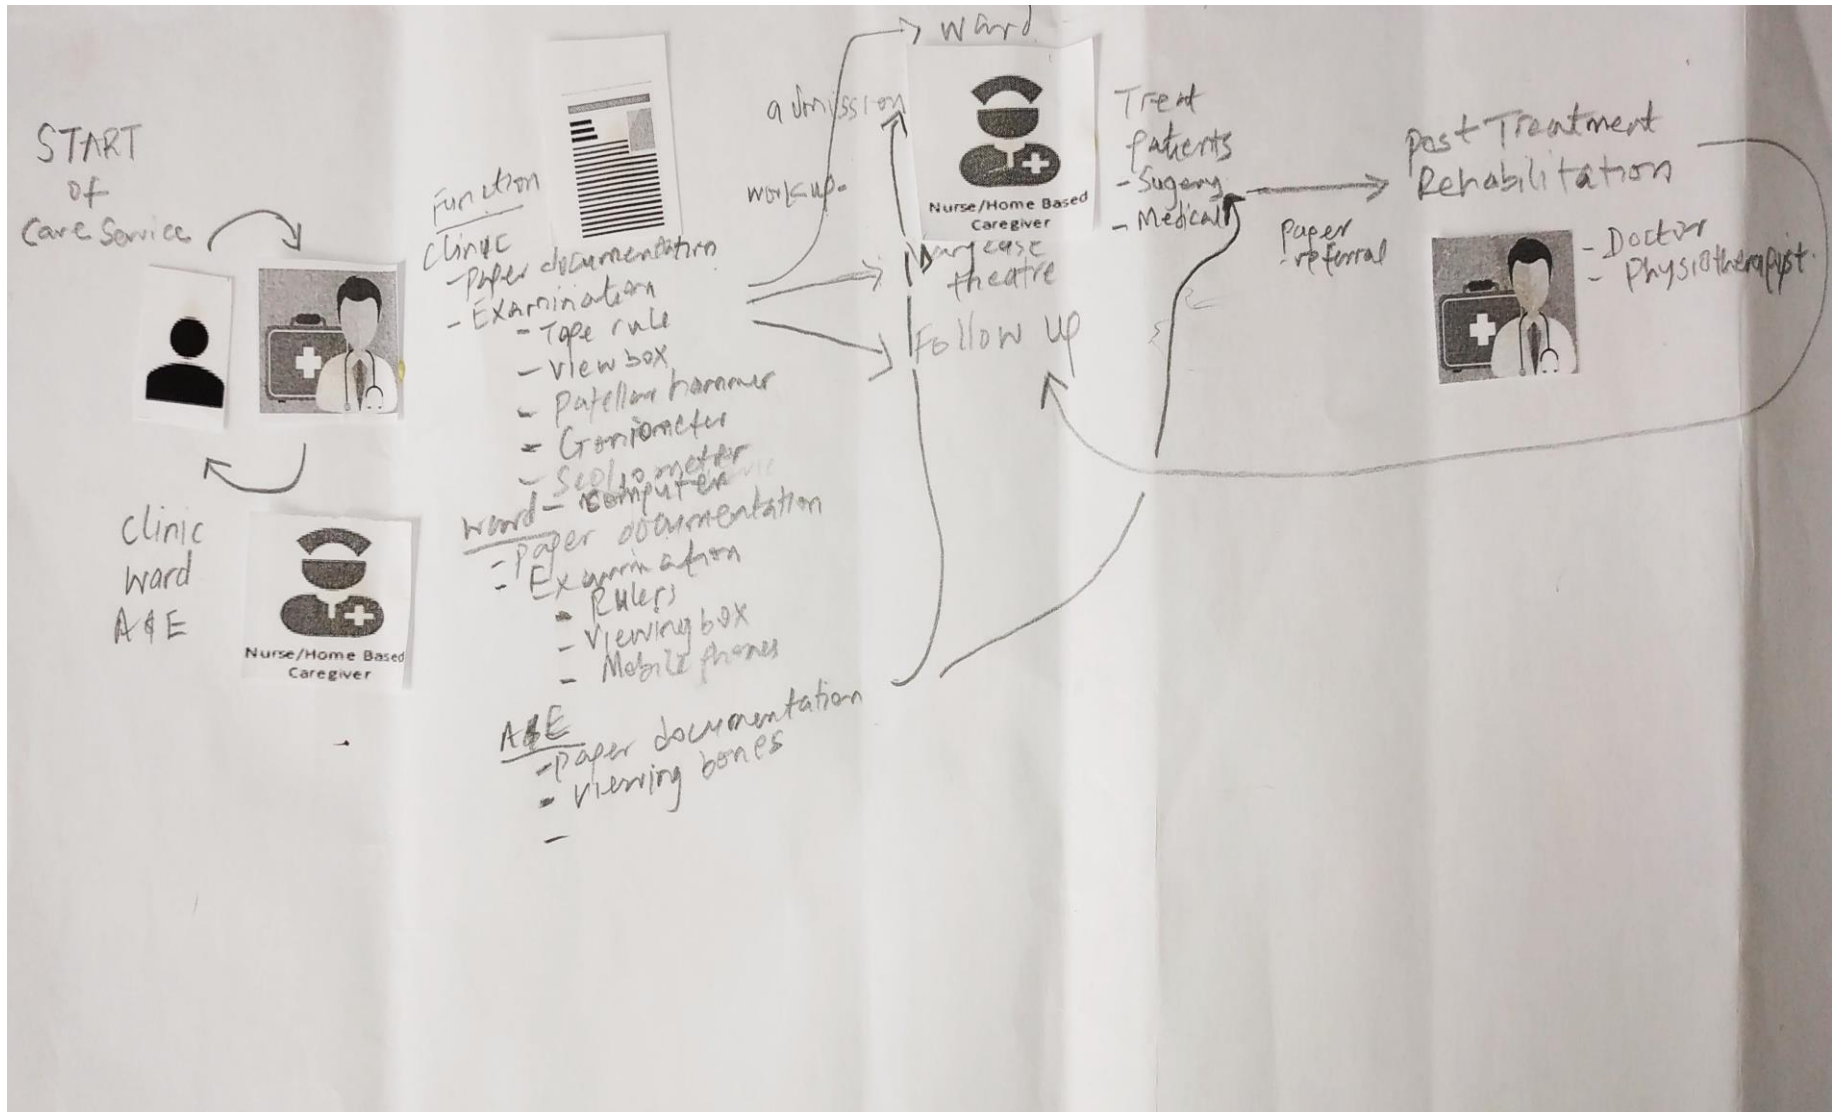 START
of
Care Service
Clinic
Ward
A&E
Nurse/Home Based
Caregiver
Function
Clinic
- Paper documentation
- Examination
- Tape rule
- View box
- Patellar hammer
- Goniometer
- Scoliometer
- computer
Ward
- Paper documentation
- Examination
- Rulers
- Viewing box
- Mobile phones
A&E
- Paper documentation
- Viewing bones
-
admission
work up
Ward
Nurse/Home Based
Caregiver
theatre
Follow up
Treat
patients
- Sugery
- Medical
Paper
referral
Post Treatment
Rehabilitation
- Doctor
- Physiotherapist.